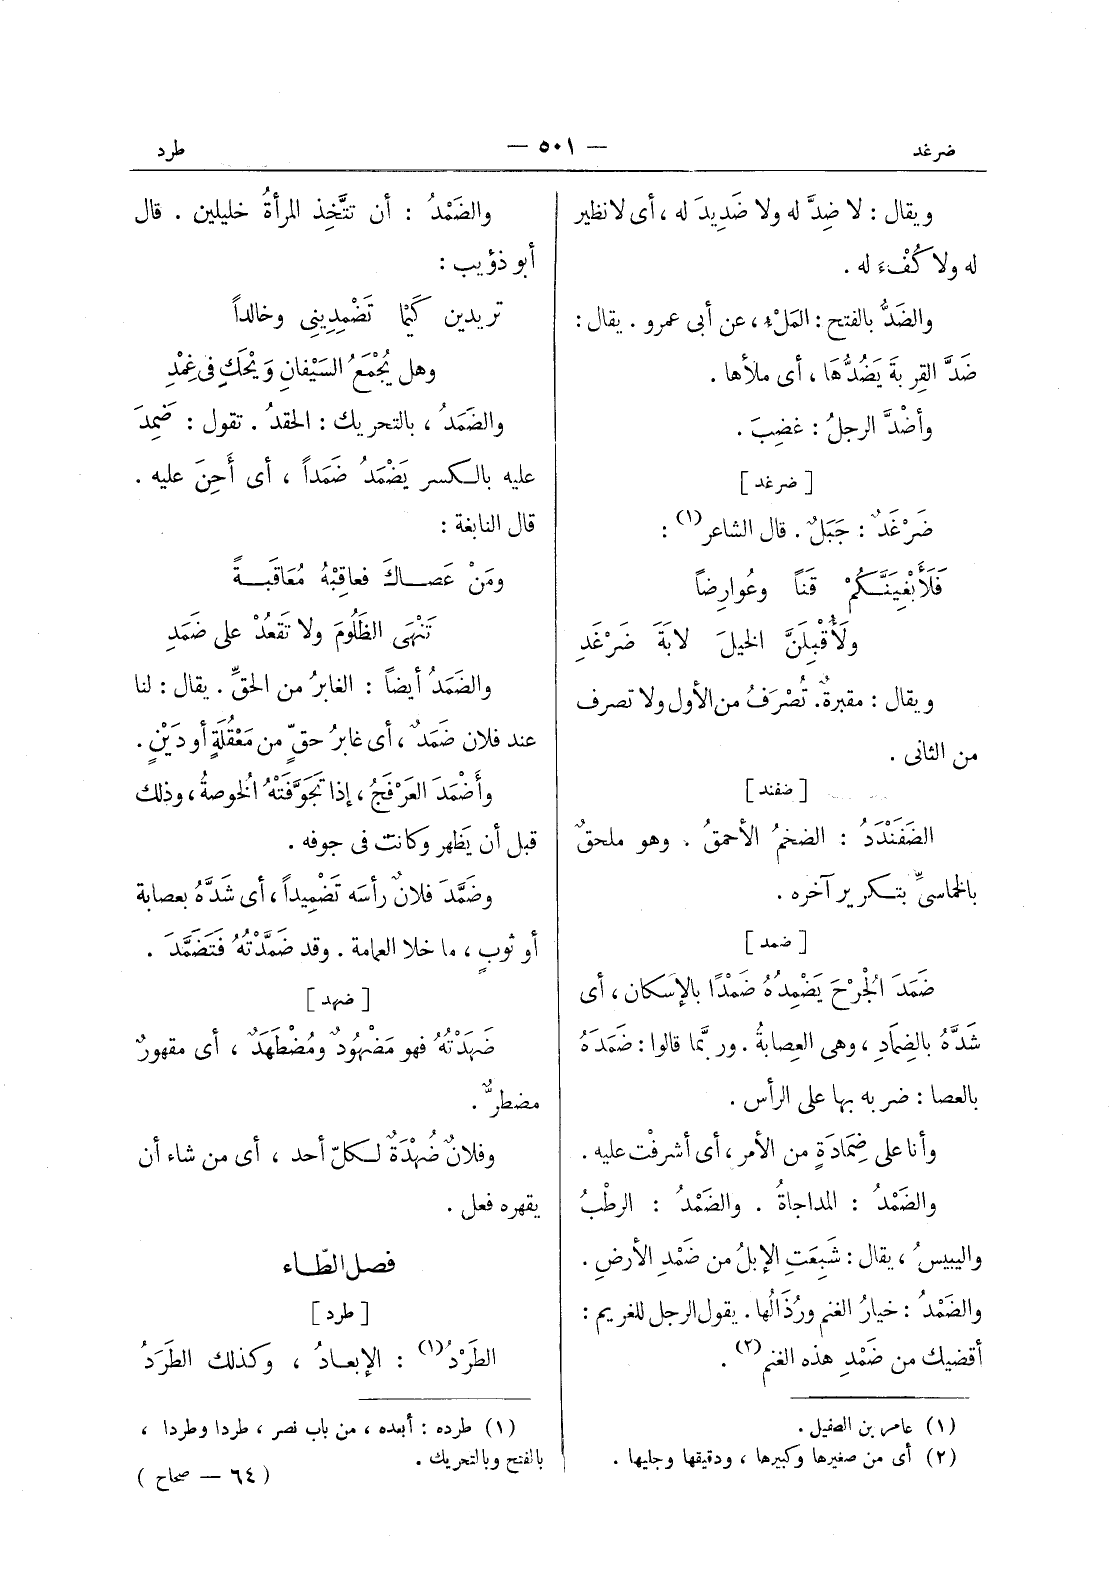 ضرغد
— ٥٠١ —
طرد
ويقال : لا ضِدَّ له ولا ضَدِيدَ له ، أى لا نظير
له ولا كُفْءَ له .
والضَدُّ بالفتح : المَلْءُ ، عن أبى عمرو . يقال :
ضَدَّ القِربةَ يَضُدُّهَا ، أى ملأها .
وأضْدَّ الرجلُ : غضِبَ .
[ ضرغد ]
ضَرْغَدٌ : جَبَلٌ . قال الشاعر (١) :
فَلَأَبْغِيَنَّكُمْ قَناً وعُوارِضاً
ولَأُقْبِلَنَّ الخيلَ لابَةَ ضَرْغَدِ
ويقال : مقبرةٌ. تُصْرَفُ من الأول ولا تصرف
من الثانى .
[ ضفند ]
الضَفَنْدَدُ : الضخمُ الأحمقُ . وهو ملحقٌ
بالخماسىِّ بتكرير آخره .
[ ضمد ]
ضَمَدَ الجُرْحَ يَضْمِدُهُ ضَمْدًا بالإسكان ، أى
شَدَّهُ بالضِمَادِ ، وهى العِصابةُ . وربَّما قالوا : ضَمَدَهُ
بالعصا : ضربه بها على الرأس .
وأنا على ضِمَادَةٍ من الأمر ، أى أشرفْت عليه .
والضَمْدُ : المداجاةُ . والضَمْدُ : الرطْبُ
واليبيسُ ، يقال : شَبِعَتِ الإبلُ من ضَمْدِ الأرضِ .
والضَمْدُ : خيارُ الغنم ورُذَالُها. يقول الرجل للغريم :
أقضيك من ضَمْدِ هذه الغنم (٢) .
(١) عامر بن الطفيل .
(٢) أى من صغيرها وكبيرها ، ودقيقها وجليها .
والضَمْدُ : أن تتَّخِذ المرأةُ خليلين . قال
أبو ذؤيب :
تريدين كَيْمَا تَضْمِدِينِى وخالداً
وهل يُجْمَعُ السَيْفانِ وَيْحَكِ فى غِمْدِ
والضَمَدُ ، بالتحريك : الحقدُ . تقول : ضَمِدَ
عليه بالكسر يَضْمَدُ ضَمَداً ، أى أَحِنَ عليه .
قال النابغة :
ومَنْ عَصاكَ فعاقِبْهُ مُعَاقَبةً
تَنْهَى الظَلُومَ ولا تَقعُدْ على ضَمَدِ
والضَمَدُ أيضاً : الغابرُ من الحقِّ . يقال : لنا
عند فلان ضَمَدٌ ، أى غابرُ حقٍّ من مَعْقُلَةٍ أو دَيْنٍ .
وأَضْمَدَ العَرْفَجُ ، إذا تَجَوَّفَتْهُ الخُوصةُ ، وذلك
قبل أن يَظهر وكانت فى جوفه .
وضَمَّدَ فلانٌ رأسَه تَضْمِيداً ، أى شَدَّهُ بعصابة
أو ثوبٍ ، ما خلا العمامة . وقد ضَمَّدْتُهُ فَتَضَمَّدَ .
[ ضهد ]
ضَهَدْتُهُ فهو مَضْهُودٌ ومُضْطَهَدٌ ، أى مقهورٌ
مضطرٌّ .
وفلانٌ ضُهْدَةٌ لكلّ أحد ، أى من شاء أن
يقهره فعل .
فصل الطّاء
[ طرد ]
الطَرْدُ (١) : الإبعادُ ، وكذلك الطَرَدُ
(١) طرده : أبعده ، من باب نصر ، طردا وطردا ،
بالفتح وبالتحريك .
( ٦٤ — صحاح )